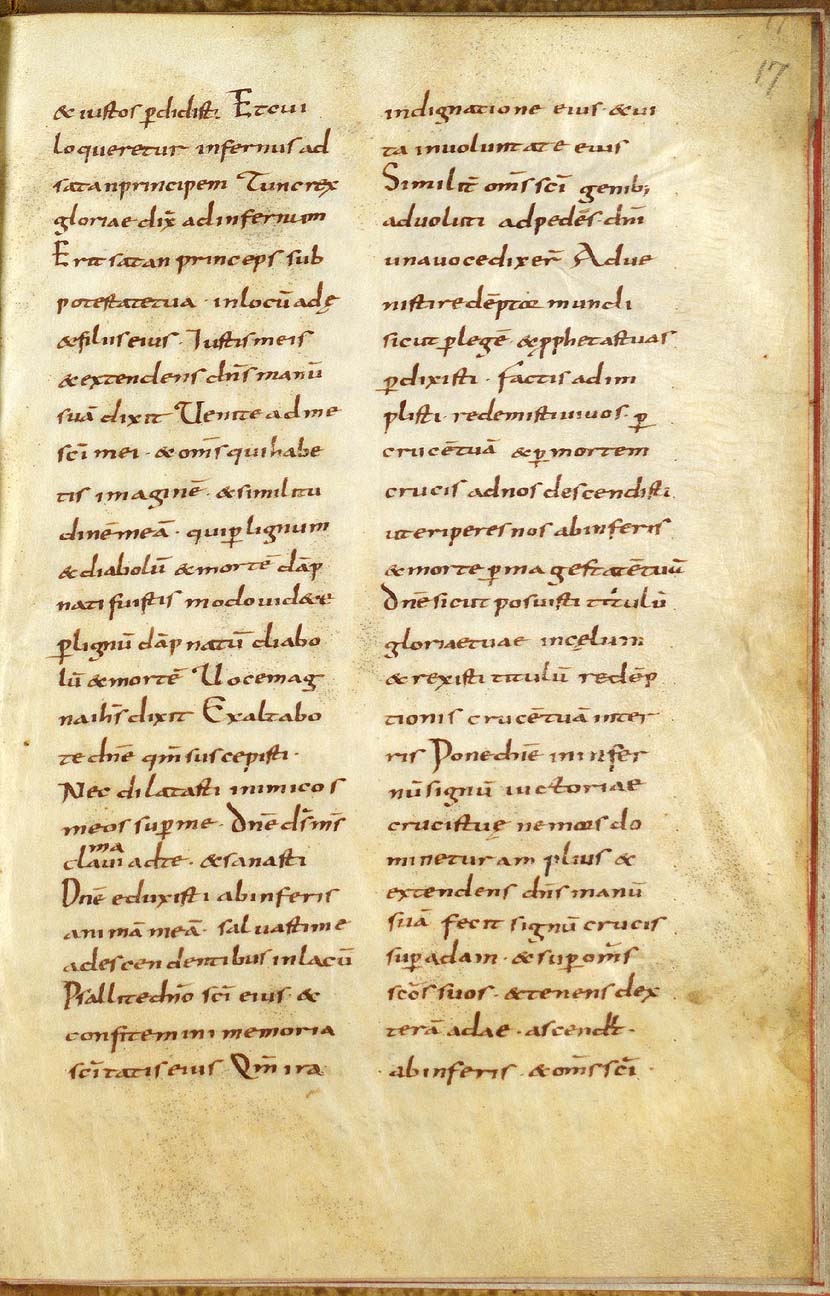 17
& iustos p̱didisti. Et cui
loqueretur infernus ad
satan principem Tunc rex
gloriae dix̄ ad infernum
Erit satan princeps sub
potestate tua · in locū adę
& filiis eius · Iustis meis
& extendens dn̄s manū
suā dixit Uenite ad me
sc̄i mei · & om̄s qui habe
tis imaginē · & similitu
dinē meā · qui p̱ lignum
& diabolū & mortē dāp
nati fuistis modo uid&e
p̱ lignū dāpnatū diabo
lū & mortē Uoce mag
na ih̄s dixit Exaltabo
te dn̄e qm̄ suscepisti ·
Nec dilatasti inimicos
meos sup̱ me · Dn̄e d̄s m̄s
clamaui ad te · & sanasti
Dn̄e eduxisti ab inferis
animā meā · saluasti me
a descendentibus in lacū
Psallite dn̄o sc̄i eius · &
confitemini memoria
sc̄itatis eius Qm̄ ira
indignatione eius · & ui
ta in uoluntate eius
Similit̄ om̄s sc̄i genib;
aduoluti ad pedēs dn̄i
una uoce dixer̄ Adue
nisti redēptor mundi
sicut p̱ legē · & ꝓphetas tuas
p̱dixisti · factis adim
plisti · redemisti uiuos · p̱
crucē tuā & p̱ mortem
crucis ad nos descendisti
ut eriperes nos ab inferis
& morte p̱ magestatē tuū
Dn̄e sicut posuisti titulū
gloriae tuae in cęlum
& rexisti titulū redēp
tionis crucē tuā inter
ris Pone dn̄e in infer
nū signū uictoriae
crucis tuę ne mors do
minetur amplius &
extendens dn̄s manū
suā fecit signū crucis
sup̱ adam · & sup̱ om̄s
sc̄os suos · & tenens dex
terā adae · ascendit ·
ab inferis · & om̄s sc̄i ·